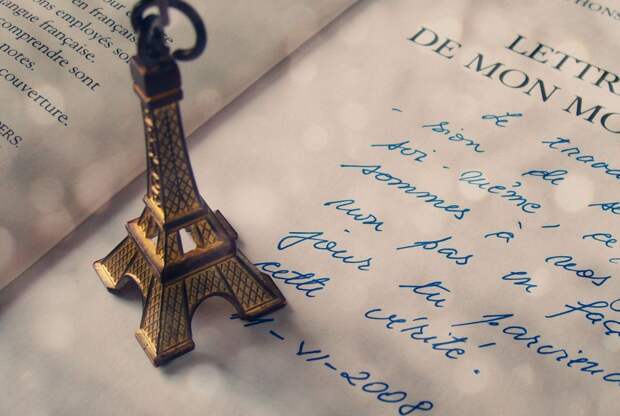 en français
ns employés son
langue française.
omprendre sont
notes.
couverture.
TIONS
LETTR
DE MON MO
Le trava
- sion de se
soi-même, ce
sommes à nos
non pas en faç
jour tu parviend
cette vérité.
11-VI-2008